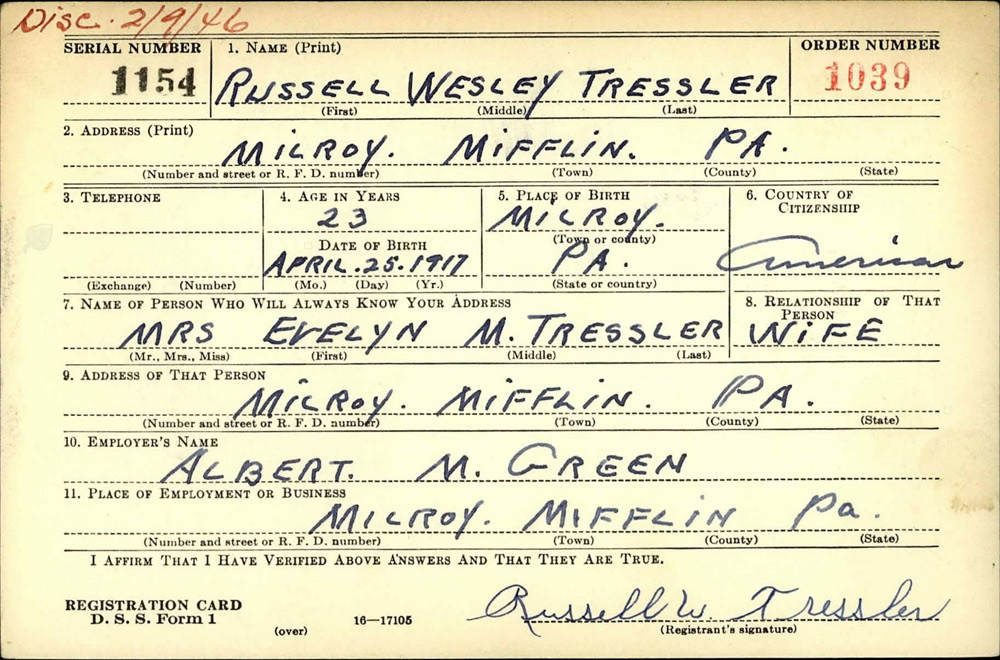 Disc. 2/9/46
SERIAL NUMBER 1. NAME (Print) ORDER NUMBER
1154 RUSSELL WESLEY TRESSLER 1039
(First) (Middle) (Last)
2. ADDRESS (Print)
MILROY. MIFFLIN. PA.
(Number and street or R. F. D. number) (Town) (County) (State)
3. TELEPHONE 4. AGE IN YEARS 5. PLACE OF BIRTH 6. COUNTRY OF CITIZENSHIP
23 MILROY.
DATE OF BIRTH (Town or county)
APRIL. 25. 1917 PA. American
(Exchange) (Number) (Mo.) (Day) (Yr.) (State or country)
7. NAME OF PERSON WHO WILL ALWAYS KNOW YOUR ADDRESS 8. RELATIONSHIP OF THAT PERSON
MRS EVELYN M. TRESSLER WIFE
(Mr., Mrs., Miss) (First) (Middle) (Last)
9. ADDRESS OF THAT PERSON
MILROY. MIFFLIN. PA.
(Number and street or R. F. D. number) (Town) (County) (State)
10. EMPLOYER'S NAME
ALBERT. M. GREEN
11. PLACE OF EMPLOYMENT OR BUSINESS
MILROY. MIFFLIN Pa.
(Number and street or R. F. D. number) (Town) (County) (State)
I AFFIRM THAT I HAVE VERIFIED ABOVE ANSWERS AND THAT THEY ARE TRUE.
REGISTRATION CARD Russell W. Tressler
D. S. S. Form 1 (over) 16—17105 (Registrant's signature)